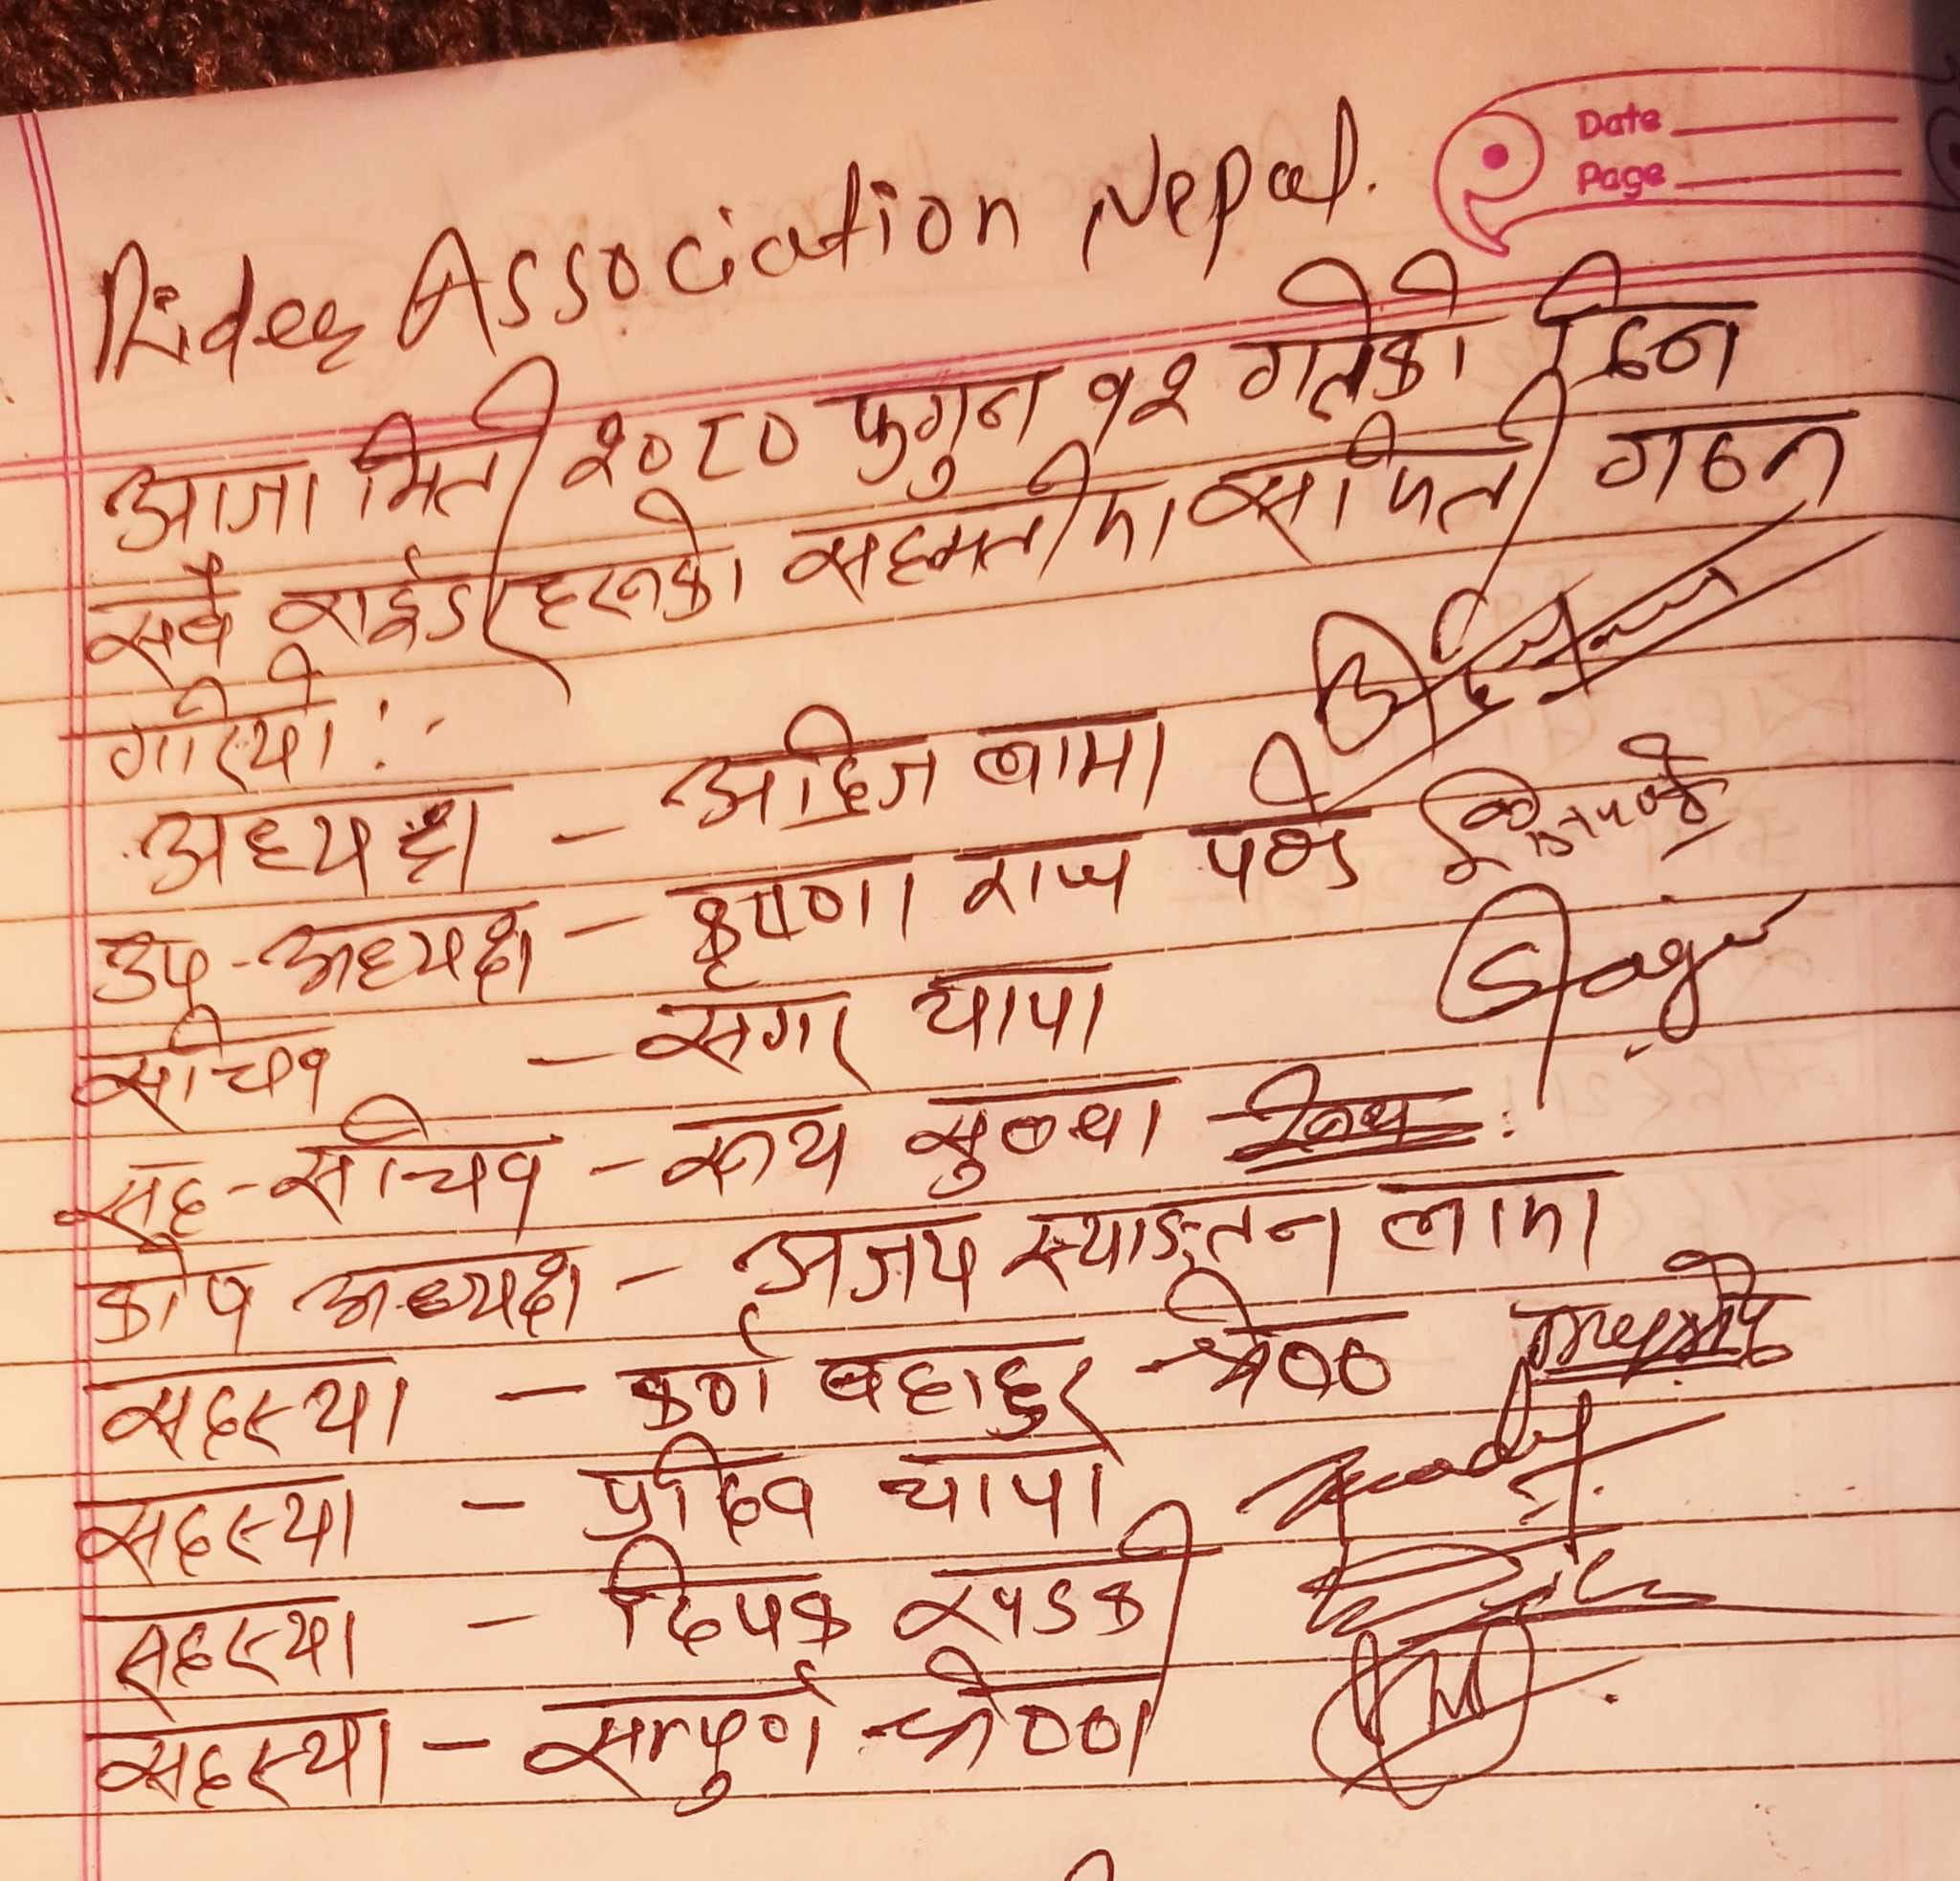 Date
Page
Rider Association Nepal.
आजा मिती २०८० फुगुन १२ गतेको दिन
सबै राईडरहरूको सहमतीमा समिती गठन
गरियो :-
अध्यक्ष - अदिज लामा
उप-अध्यक्ष - कृष्णा राज पाण्डे
सचिव - सगर थापा Sagar
सह-सचिव - रूथ सुब्बा रूथ
कोष अध्यक्ष - अजय स्याङ्तन लामा
सदस्या - कर्ण बहादुर श्रेष्ठ
सदस्या - प्रदिव थापा
सदस्या - दिपक खड्की
सदस्या - सम्पुर्ण श्रेष्ठ